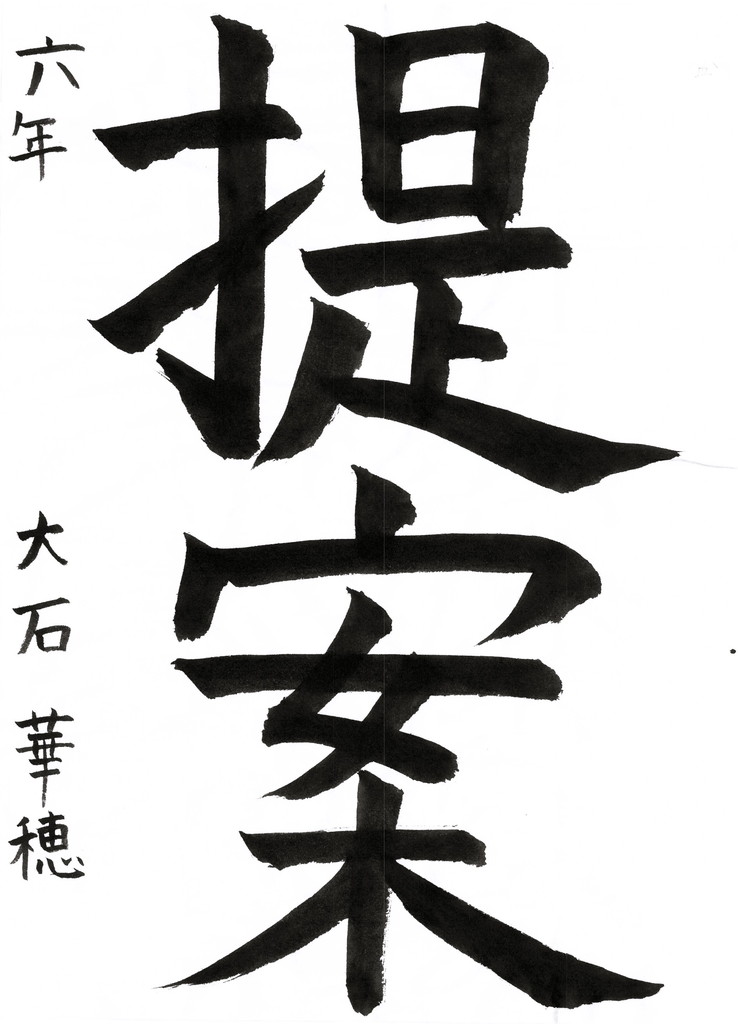 提案
六年 大石 華穂